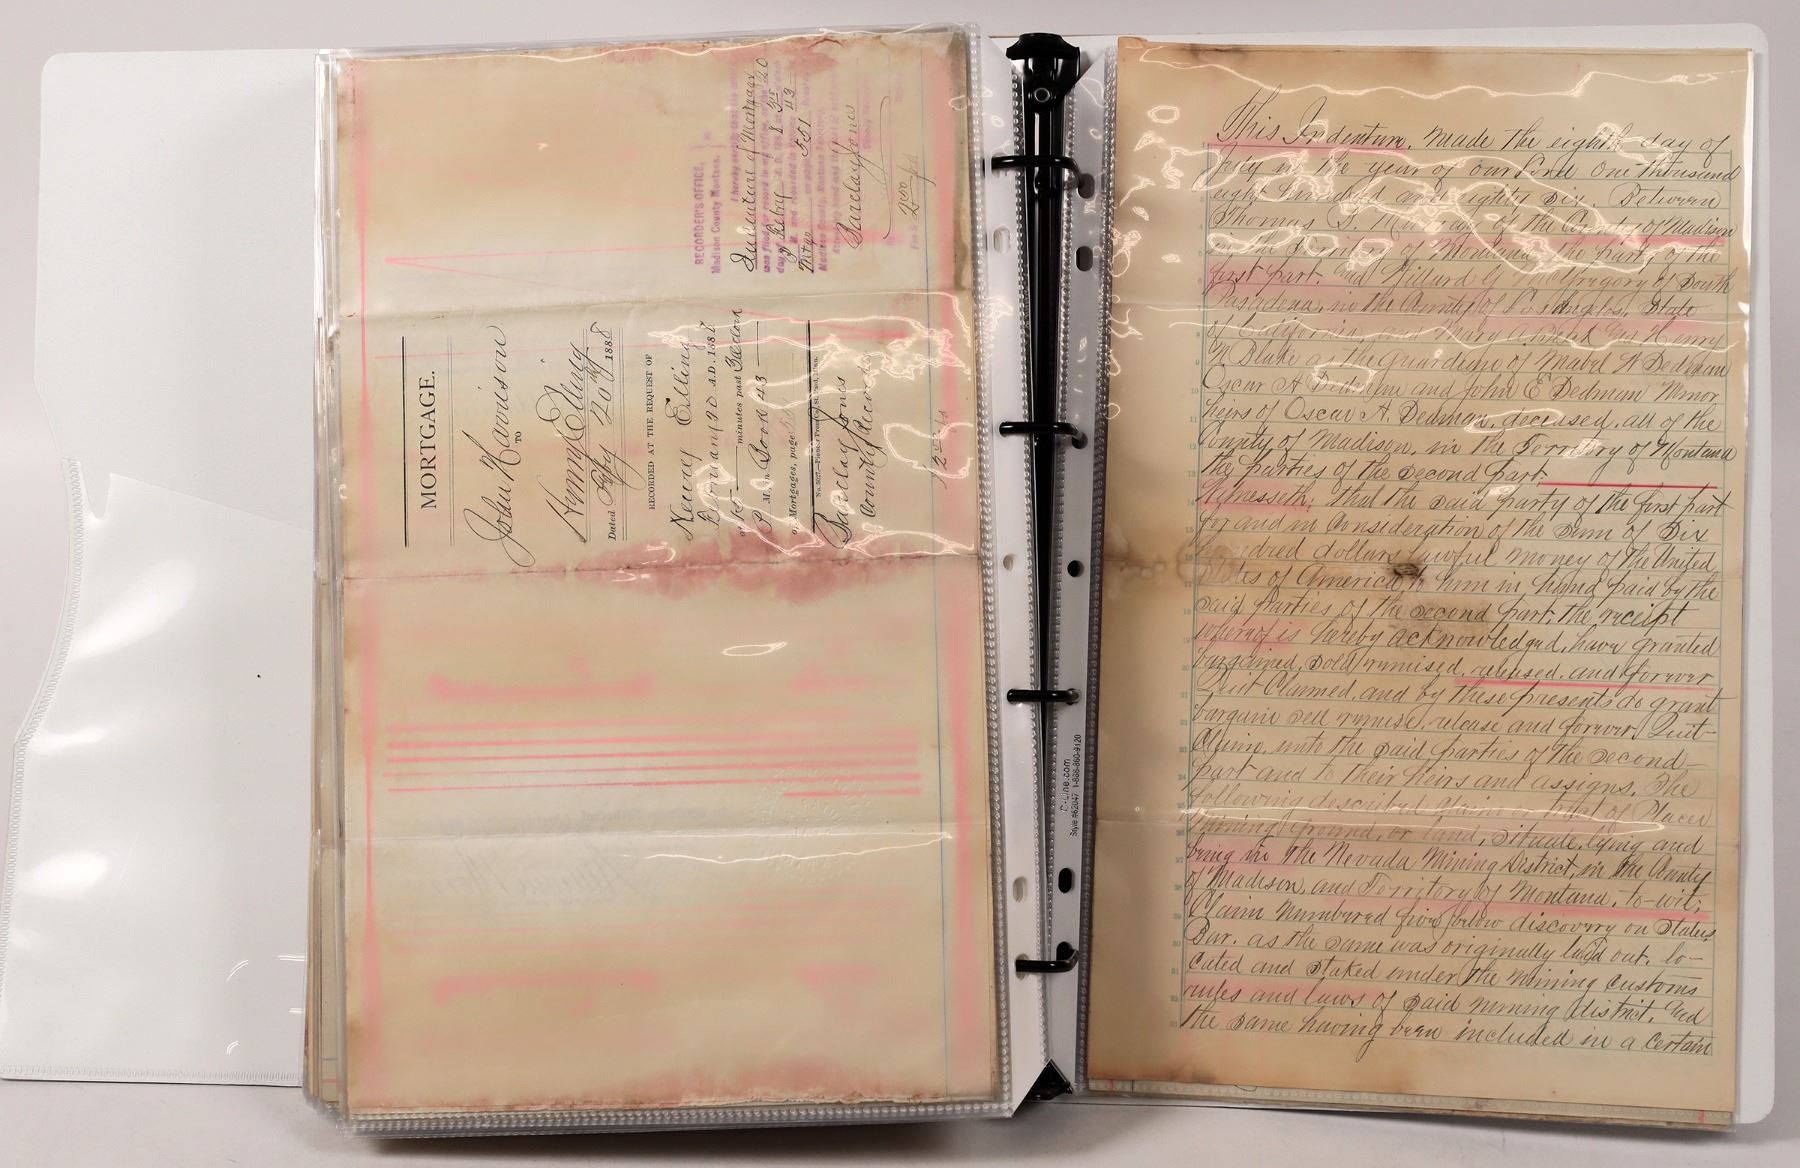 MORTGAGE.
John Harrison
TO
Henry Elling
Dated Feby 20th 1888
RECORDED AT THE REQUEST OF
Henry Elling
A.D. 1888
minutes past
P M. in Book 43
of Mortgages, page
Barclay Jones
County Recorder
RECORDER'S OFFICE,
Madison County Montana,
I hereby certify that the
Indenture of Mortgage
was filed for record in my office, on the 20
day of Feby A. D. 188 8 at
M. and recorded in 43
Mtgs on page 551
Madison County, Montana Territory.
Barclay Jones
2 00
D-Line.com
Style #62047 1-888-860-9120
This Indenture, Made the eighth day of
July in the year of our Lord One thousand
eight hundred and eighty Six. Between
Thomas of the County of Madison
in the Territory of Montana, the party of the
first part. and Willard G McGregory of South
Pasadena, in the County of Los Angelos, State
of California, and Mary and Henry
N Blake as the Guardian of Mabel H Dedman
Oscar A Dedman and John E Dedman Minor
heirs of Oscar A. Dedman, deceased, all of the
County of Madison, in the Territory of Montana
the parties of the second part.
Witnesseth: that the said party of the first part
for and in Consideration of the sum of Six
hundred dollars lawful money of the United
States of America, to him in hand paid by the
said parties of the second part, the receipt
whereof is hereby acknowledged, have granted
bargained, sold remised, released, and forever
Quit Claimed, and by these presents do grant
bargain sell remise, release and forever, Quit-
Claim, unto the said parties of the second-
part and to their heirs and assigns, The
following described Claim or tract of Placer
Mining Ground, or land, situate, lying and
being in the Nevada Mining District, in the County
of Madison, and Territory of Montana, to-wit;
Claim Numbered five below discovery on
Bar. as the same was originally laid out, lo-
cated and staked under the mining customs
rules and laws of said mining district, and
the same having been included in a certain